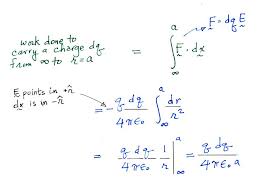 work done to
carry a charge dq
from ∞ to r=a
= ∫_∞^a F · dx
F = dq E
E points in +r̂
dx is in -r̂
= - q dq / 4πε₀ ∫_∞^a dr / r²
= q dq / 4πε₀ 1/r |_∞^a = q dq / 4πε₀ a